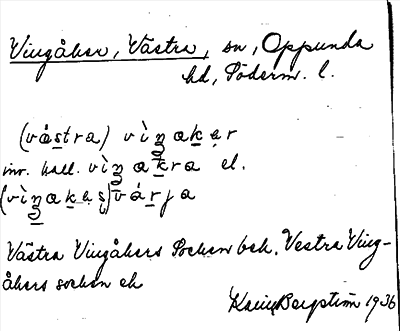 Vingåker, Västra, sn, Oppunda
hd, Söderm. l.
(västra) vìŋakər
inv. kall. vìŋakra el.
(vìŋakəş) várja
Västra Vingåkers Socken bok. Vestra Ving-
åkers socken ek
Karin Bergström 1936